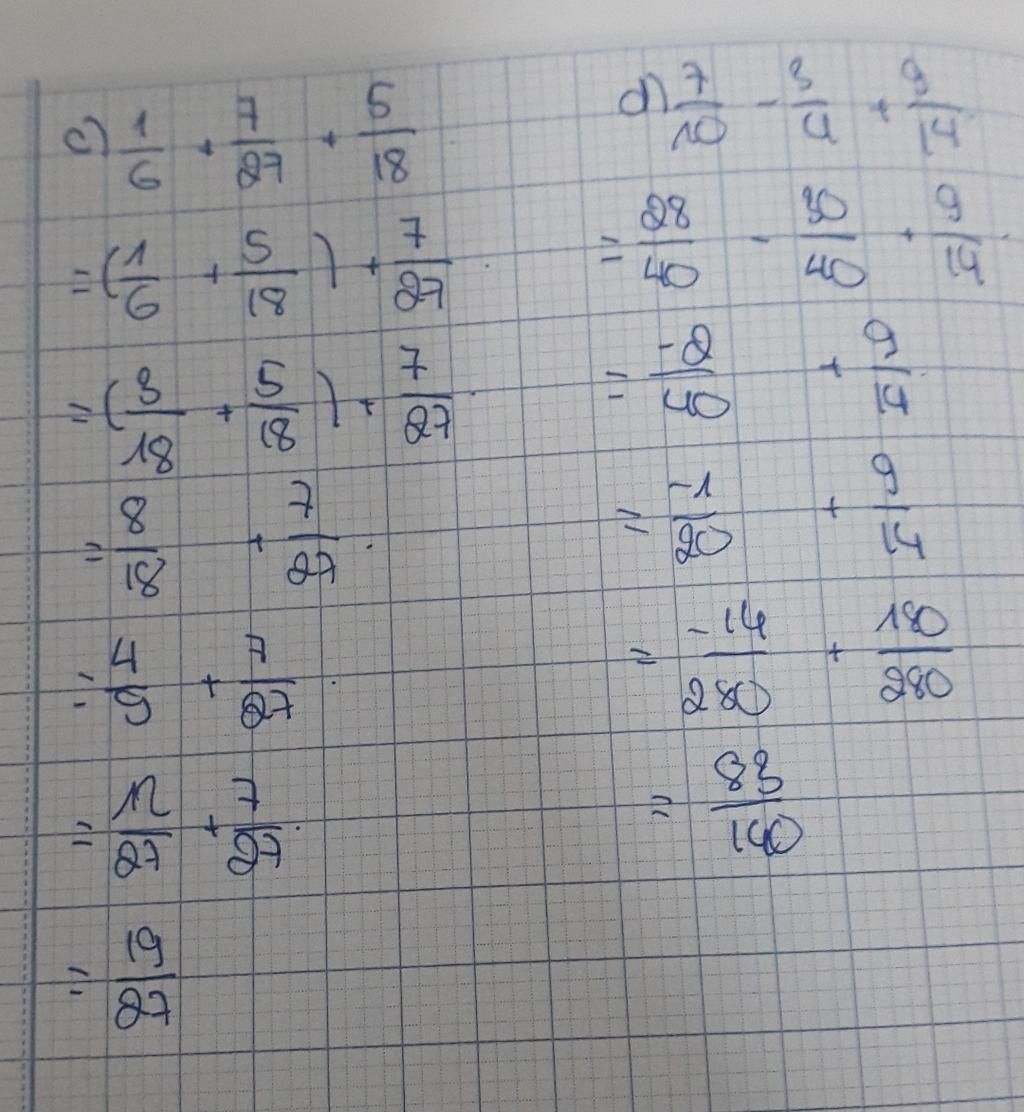 c) 1/6 + 7/27 + 5/18
= (1/6 + 5/18) + 7/27
= (3/18 + 5/18) + 7/27
= 8/18 + 7/27
= 4/9 + 7/27
= 12/27 + 7/27
= 19/27
d) 7/10 - 3/4 + 9/14
= 28/40 - 30/40 + 9/14
= -2/40 + 9/14
= -1/20 + 9/14
= -14/280 + 180/280
= 83/140